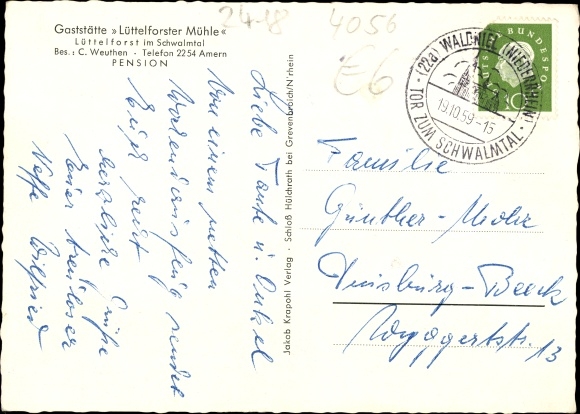 Gaststätte »Lüttelforster Mühle«
Lüttelforst im Schwalmtal
Bes.: C. Weuthen - Telefon 2254 Amern
PENSION
24-18
4056
E6
Liebe Tante u. Onkel
Von einem netten
Wochenausflug sendet
Euch recht
herzliche Grüße
Euer treuloser
Neffe Wilfried
Jakob Krapohl Verlag · Schloß Hülchrath bei Grevenbroich/N'rhein
(22a) WALDNIEL (NIEDERRHEIN)
19.10.59-15
TOR ZUM SCHWALMTAL
DEUTSCHE BUNDESPOST
10
Familie
Günther-Mohr
Duisburg-Beeck
13